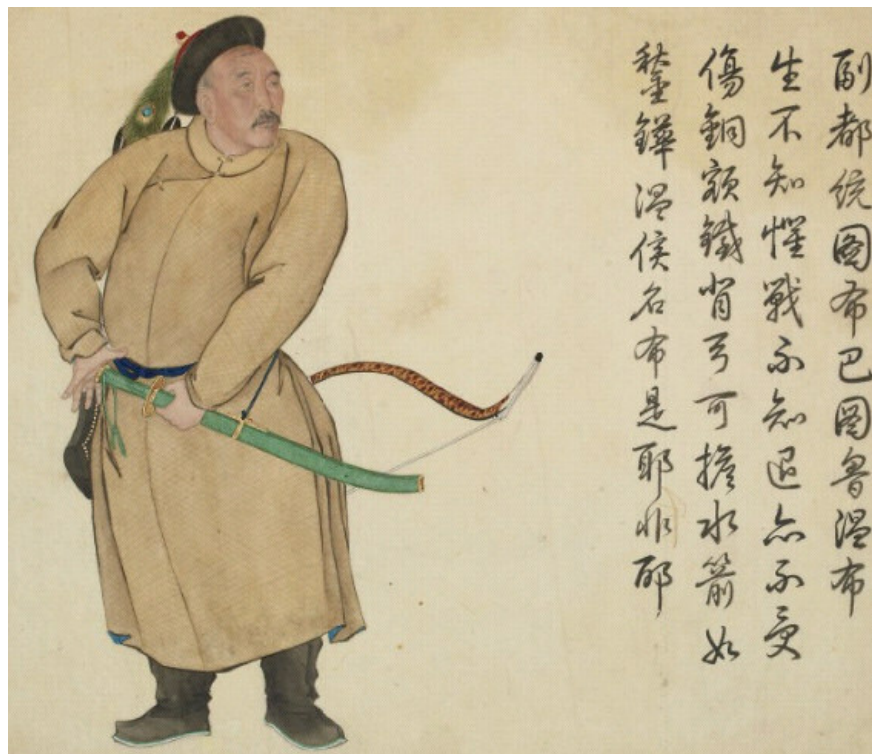 副都統圖布巴圖魯温布
生不知懼戰不知退亦不受
傷銅額鐵背弓可擔水箭如
鍬鏵温侯名布是耶非耶